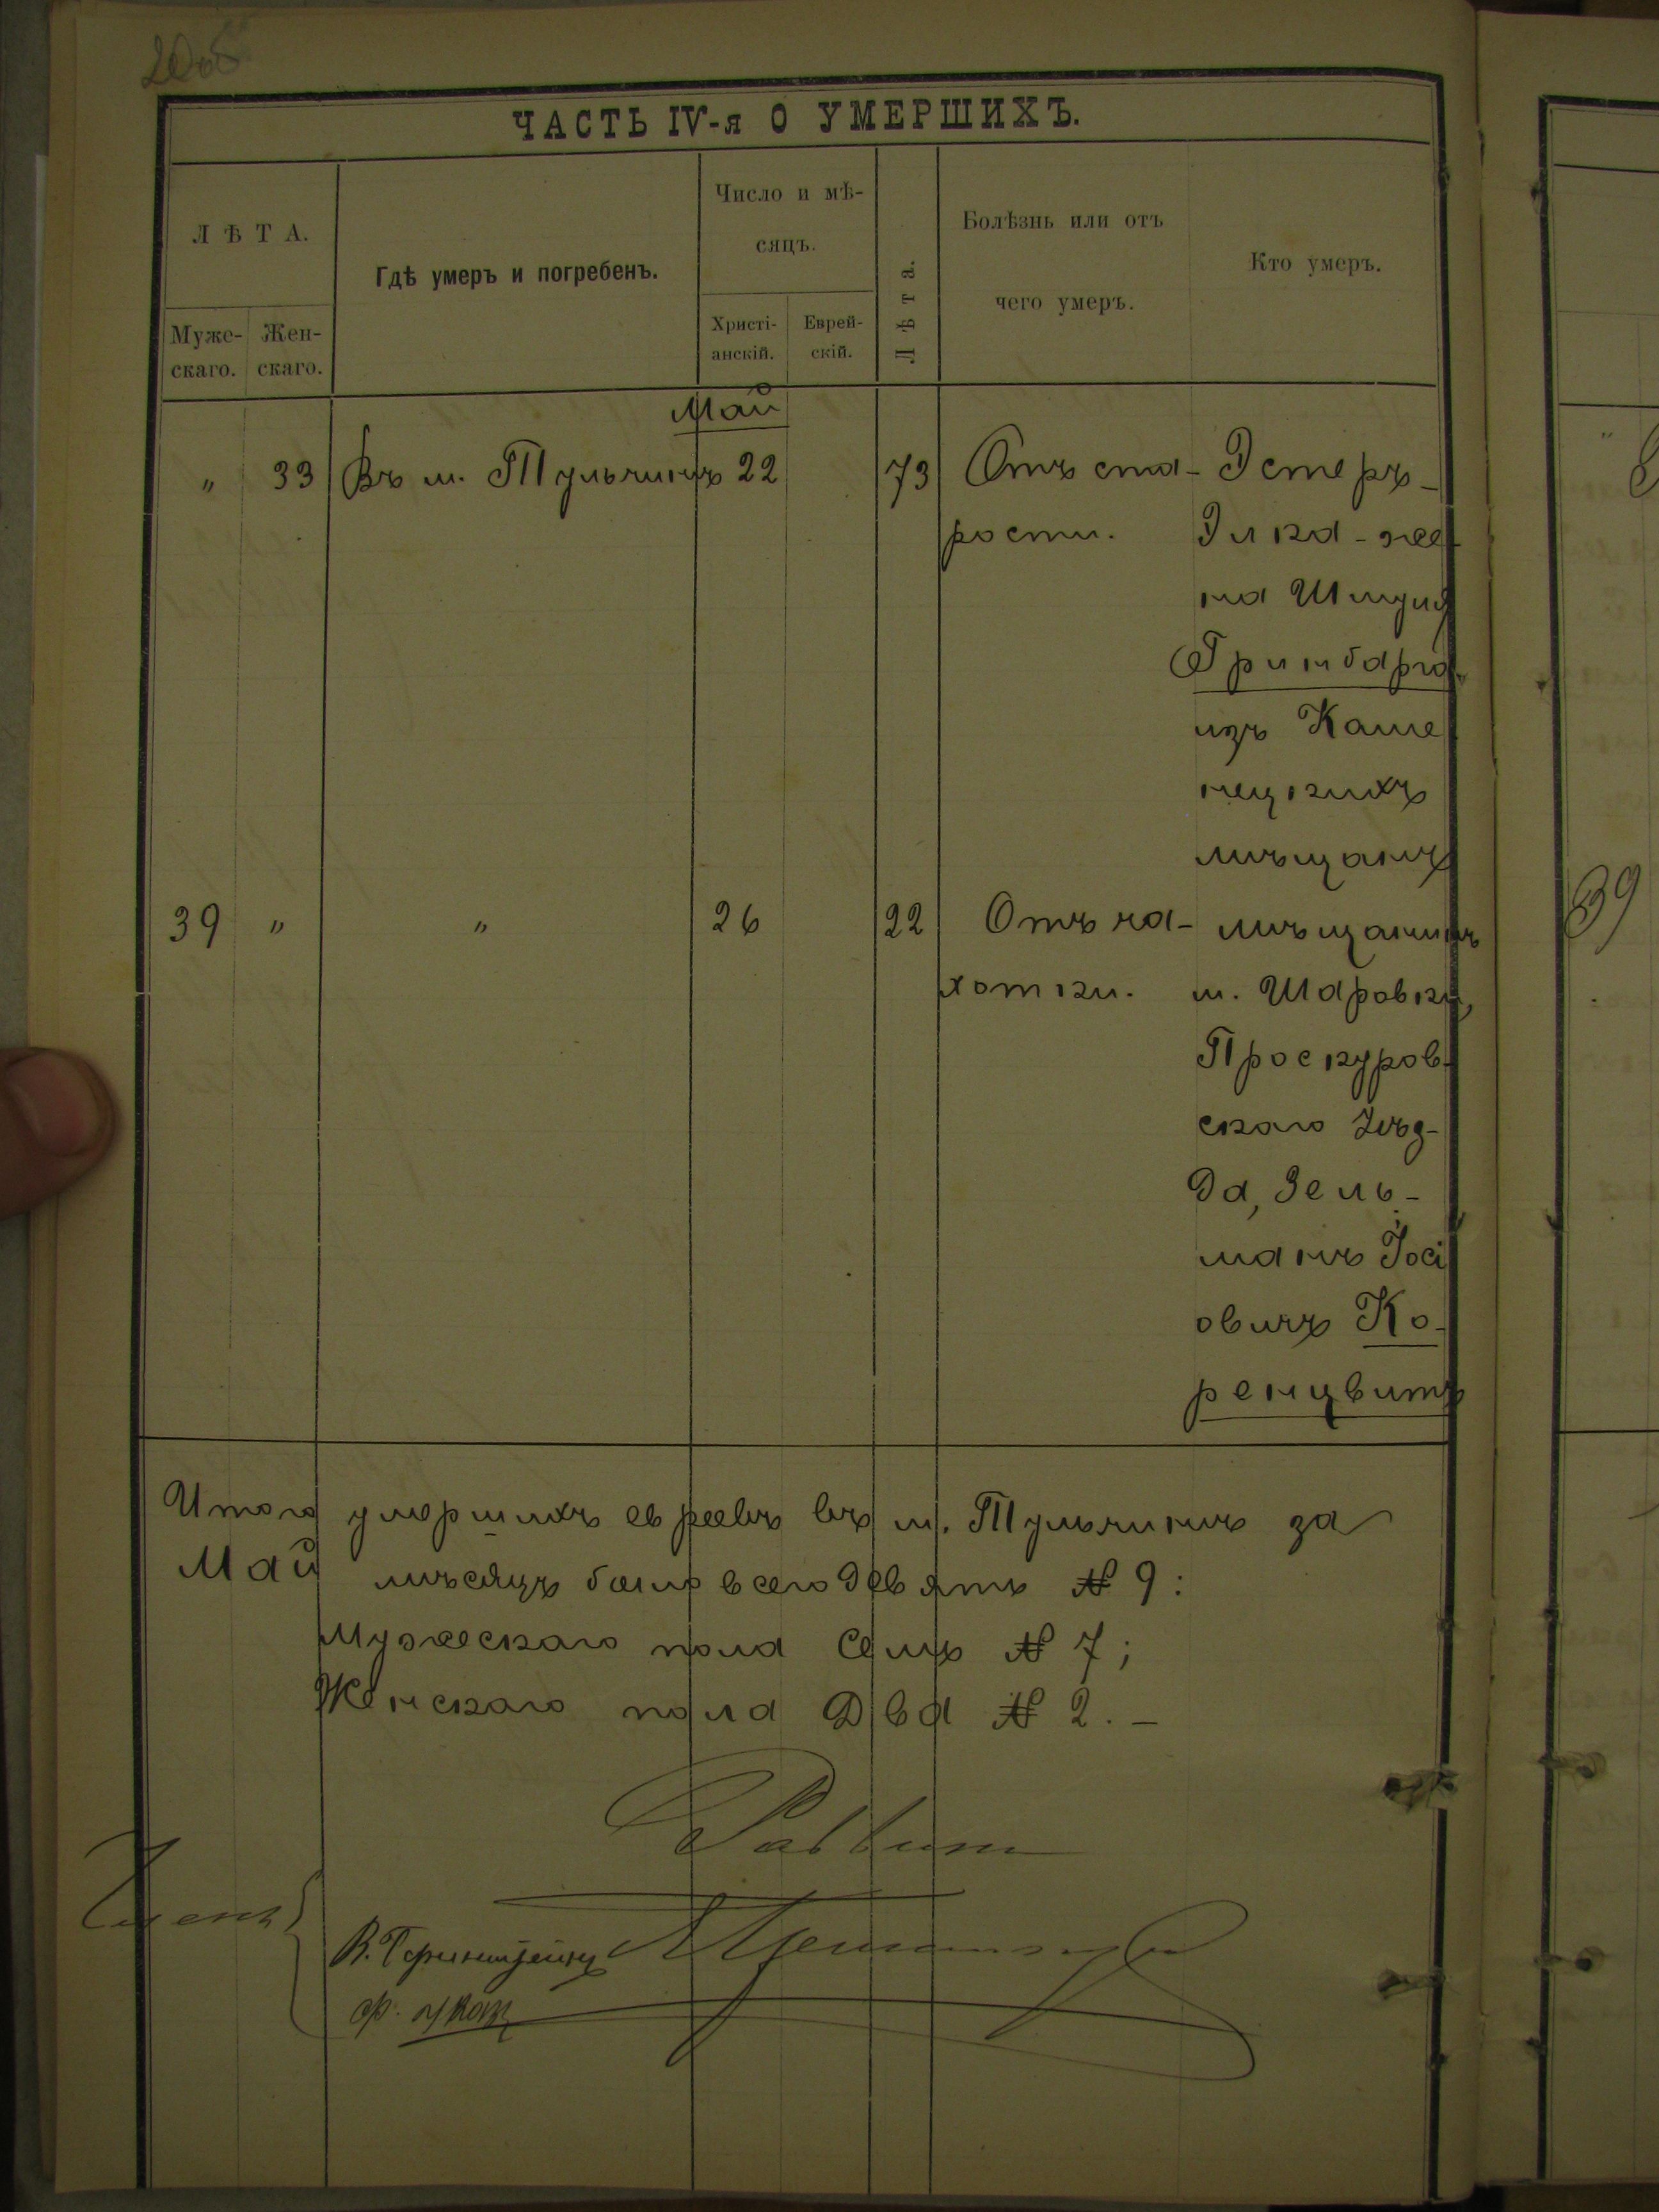 ЧАСТЬ IV-я О УМЕРШИХЪ.
ЛѢТА.
Муже-
скаго.
Жен-
скаго.
Гдѣ умеръ и погребенъ.
Число и мѣ-
сяцъ.
Христі-
анскій.
Еврей-
скій.
Лѣта.
Болѣзнь или отъ
чего умеръ.
Кто умеръ.
Май
" 33 Въ м. Тульчинѣ 22 73 Отъ ста- Эстеръ-
рости. Элка - же
на Шмуля
Гринбарга
изъ Каме
нецкихъ
мѣщанъ
39 " " 26 22 Отъ ча- мѣщанинъ
хотки. м. Шаровки,
Проскуров-
скаго Уѣз-
да, Зель-
манъ Іосі
овичъ Ко-
ренцвитъ
Итого умершихъ евреевъ въ м. Тульчинѣ за
Май мѣсяцъ было всего девять № 9:
Мужескаго пола Семь № 7;
Женскаго пола Два № 2. -
Раввин
39